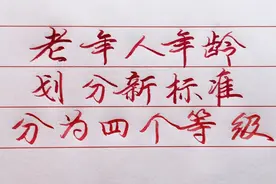 老年人年龄
划分新标准
分为四个等级